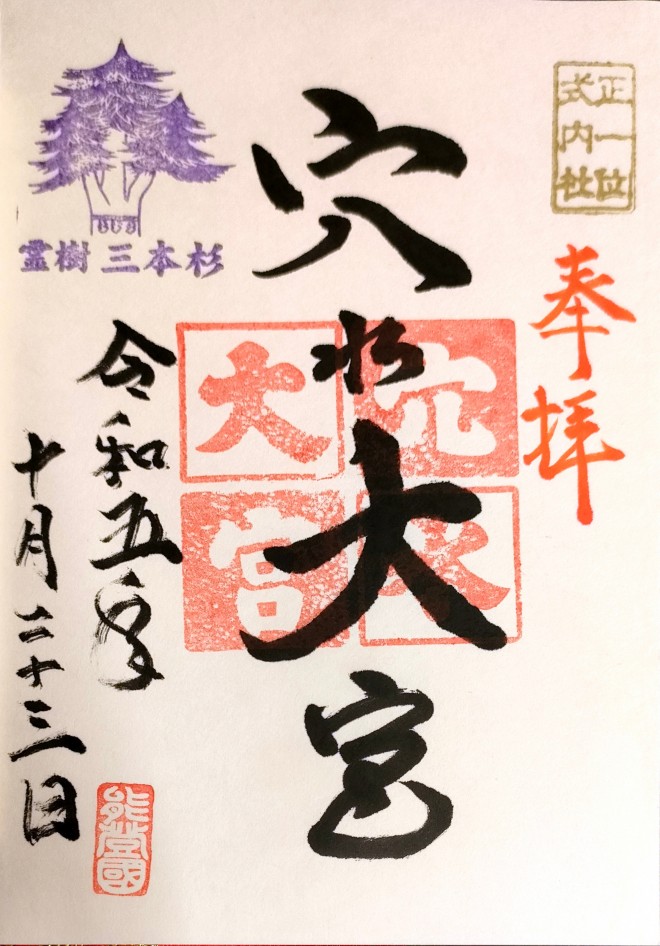 正一位
式内社
奉拝
穴水大宮
穴水
大宮
霊樹三本杉
令和五年
十月二十三日
能登國